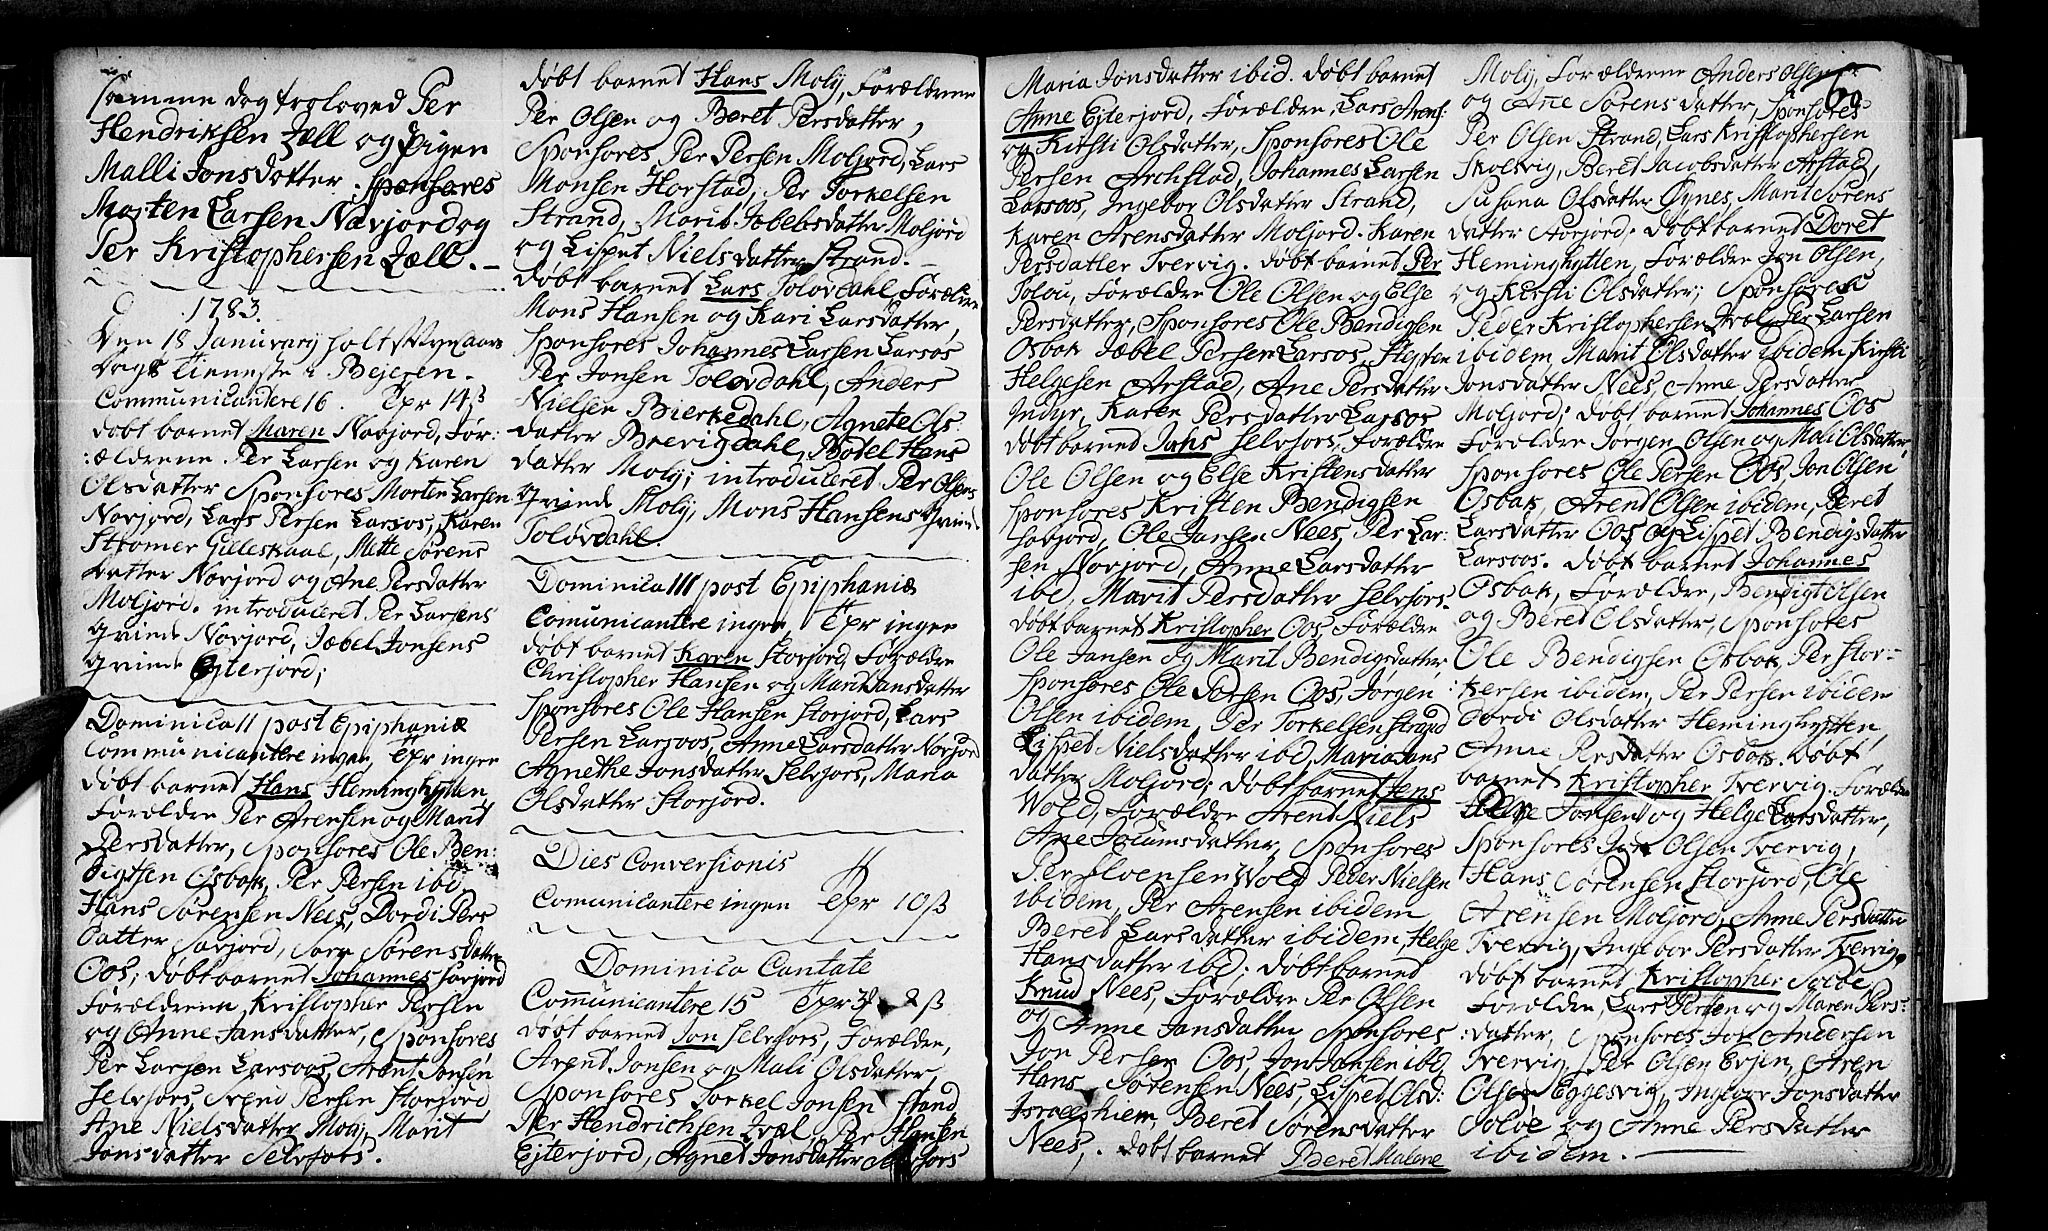 Samme dag troloved Per
Hendriksen Zæll og Pigen
Malli Jonsdatter. Sponsores
Morten Larsen Navjord og
Per Kristophersen Zæll.
1783.
Den 18 Januvary holt Nyeaars
Dags tienneste i Bejeren.
Communicantere 16. Tpr 14 ß
døbt barnet Maren Navjord, For:
:ældrene Per Larsen og Karen
Olsdatter Sponsores Morten Larsen
Navjord, Lars Persen Larsos, Karen
Stromer Gilleskaal, Mette Sørens
Datter Navjord og Ane Persdatter
Moljord. introduceret Per Larsens
qvinde Navjord, Jæbel Jonsens
qvinde Ejterjord;
Dominica II post Epiphaniæ
Communicantere ingen, Tpr ingen
døbt barnet Hans Heminghytten,
Forældre Per Arensen og Marit
Persdatter, Sponsores Ole Ben:
digtsen Osbak, Per Persen ibid,
Hans Sørensen Nees, Dordi Pers
Datter Savjord, Sara Sørensdatter
Oos; døbt barnet Johannes Savjord
Forældrene Kristopher Persen
og Anne Jansdatter, Sponsores
Per Larsen Larsoos, Arent Jonsen
Selvfors, Svend Persen Storjord
Ane Nielsdatter Moly, Marit
Jonsdatter Selvfors.
døbt barnet Hans Moly, Forældrene
Per Olsen og Beret Persdatter,
Sponsores Per Persen Moljord, Lars
Monsen Horstad, Per Torkelsen
Strand, Marit Jobebsdatter Moljord
og Lispet Nielsdatter Strand.
døbt barnet Lars Tolovdahl, Forældre
Mons Hansen og Kari Larsdatter,
Sponsores Johannes Larsen Larsos
Per Jonsen Tolovdahl, Anders
Nielsen Bierkedahl, Agnete Ols
datter Brevigdahl, Bodel Hans
datter Moly; introduceret Per Olsens
qvinde Moly, Mons Hansens qvinde
Toløvdahl.
Dominica III post Epiphaniæ
Comunicantere ingen Tpr ingen
døbt barnet Karen Storjord, Forældre
Christopher Hansen og Marit Jansdatter
Sponsores Ole Hansen Storjord, Lars
Persen Larsoos, Anne Larsdatter Navjord
Agnethe Jonsdatter Selvfors, Maria
Olsdatter Storjord.
Dies Conversionis
Comunicantere ingen Tpr 10 ß
Dominica Cantate
Comunicantere 15 Tpr 8 ß
døbt barnet Jon Selvfors, Forældre,
Arent Jonsen og Mali Olsdatter
Sponsores Torkel Jonsen Stand,
Per Hendrichsen Zvæl, Per Hansen
Ejterjord, Agnet Jonsdatter Selvfors
Maria Jonsdatter ibid. døbt barnet
Anne Ejterjord, Forældre, Lars Arens:
og Kirsti Olsdatter, Sponsores Ole
Persen Archstad, Johannes Larsen
Larsoos, Ingebor Olsdatter Strand,
Karen Arensdatter Moljord. Karen
Persdatter Tvervig. døbt barnet Per
Tolou, Forældre Ole Olsen og Else
Persdatter, Sponsores Ole Bendigsen
Osbak Jæbel Persen Larsos, Steffen
Helgesen Arstad, Ane Persdatter
Indyr, Karen Persdatter Larsos
døbt barnet Johs Selvfors, Forældre
Ole Olsen og Else Kristensdatter
Sponsores Kristen Bendigsen
Savjord, Ole Jansen Nees, Per Lar:
sen Navjord, Anne Larsdatter
ibid, Marit Persdatter Selvfors.
døbt barnet Kristopher Oos, Forældre
Ole Jansen og Marit Bendigsdatter,
Sponsores Ole Persen Oos, Jørgen
Olsen ibidem, Per Torkelsen Strand
Lispet Nielsdatter ibid, Maria Jans
datter Moljord; døbt barnet Jens
Wold, Forældre Arent Niels
Ane Joiumsdatter, Sponsores
Per Evensen Wold Peder Nielsen
ibidem, Per Arensen ibidem
Beret Larsdatter ibidem, Helge
Hansdatter ibid; døbt barnet
Knud Nees, Forældre Per Olsen
og Anne Jansdatter Sponsores
Jon Persen Oos, Jon Hansen ibid,
Hans Sørensen Nees, Lispet Olsd:
Israelshiem, Beret Sørensdatter
Nees,. døbt barnet Beret Malene
60
Moly, Forældrene Anders Olsen
og Ane Sørens datter, Sponsores
Per Olsen Strand, Lars Kristophersen
Skolvig, Beret Jacobsdatter Arstad,
Susana Olsdatter Øynes, Marit Sørens
datter Storjord. døbt barnet Doret
Heminghytten, Forældre Jon Olsen,
og Kirsti Olsdatter; Sponsores
Peder Kristophersen Per Larsen
ibidem, Marit Olsdatter ibidem Kirsti
Jonsdatter Nees, Anne Persdatter
Moljord. døbt barnet Johannes Oos
Forældre Jørgen Olsen og Mali Olsdatter,
Sponsores Ole Persen Oos, Jon Olsen
Osbak, Arent Olsen ibidem, Beret
Larsdatter Oos og Lispet Bendigsdatter
Larsoos. døbt barnet Johannes
Osbak, Forældre, Bendigt Olsen
og Beret Olsdatter, Sponsores
Ole Bendigsen Osbak, Per Stor-
kersen ibidem, Per Persen ibidem
Dordi Olsdatter Heminghytten,
Anne Persdatter Osbak. Døbt
barnet Kristopher Tvervig. Forældre
Jonsen og Helge Larsdatter,
Sponsores Jon Olsen Tvervig,
Hans Sørensen Storjord, Ole
Arensen Moljord, Anne Persdatter
Tvervig, Ingebor Persdatter Tvervig.
døbt barnet Kristopher Soløe
Forældre, Lars Persen og Maren Pers:
:datter, Sponsores Jon Andersen
Tvervig, Per Olsen Evjen, Aren
Olsen Eggesvig, Ingebor Jonsdatter
Soløe og Anne Persdatter
ibidem.